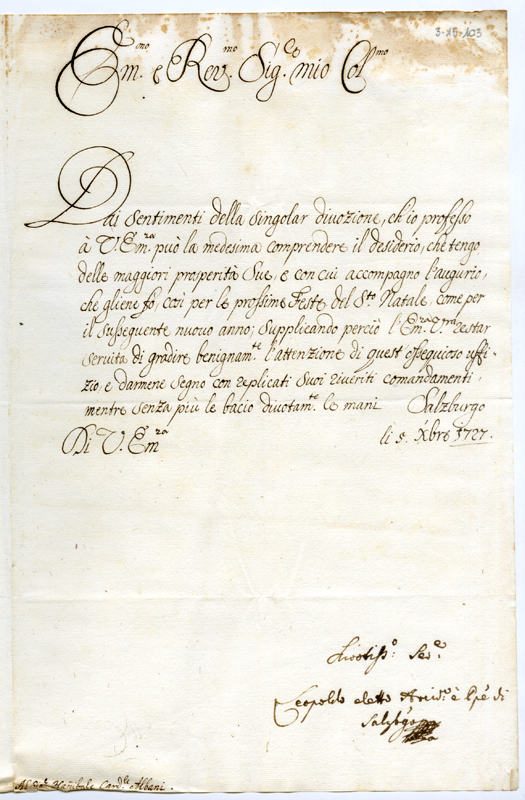 3-15-103
Em.mo e Rev.mo Sig.re mio Col.mo
Dai sentimenti della singolar divozione, ch'io professo
à V. Em.za può la medesima comprendere il desiderio, che tengo
delle maggiori prosperità Sue, e con cui accompagno l'augurio,
che gliene fò, così per le prossime Feste del S.to Natale, come per
il susseguente nuovo anno; supplicando perciò l'Em.za V.ra restar
servita di gradire benignam.te l'attenzione di quest'ossequioso uffi-
zio, e darmene segno con replicati suoi riveriti comandamenti,
mentre senza più le bacio divotam.te le mani Salzburgo
Di V. Em.za li 5. Xbre 1727.
Divotiss.o Ser.e
Leopoldo eletto Arciv.o è Ppe di
Salzbgo
Al Sig.r Hanibale Card.le Albani.